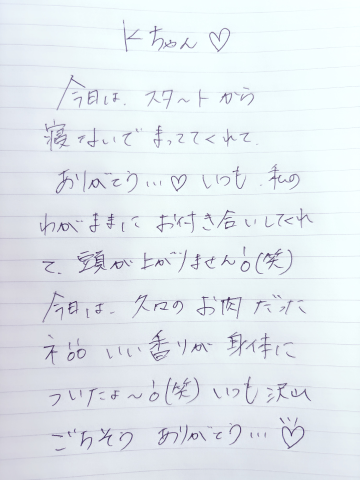 Kちゃん♡
今日は、スタートから
寝ないでまっててくれて、
ありがとう…♡いつも、私の
わがままにお付き合いしてくれ
て、頭が上がりません!(笑)
今日は、久々のお肉だった
ネ!! いい香りが身体に
ついたよ〜!(笑)いつも沢山
ごちそうありがとう…♡